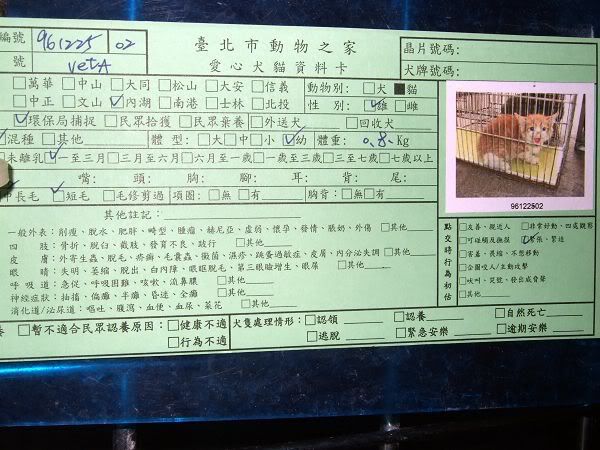 編號 961225 02
臺北市動物之家
晶片號碼:
號 vetA
愛心犬貓資料卡
犬牌號碼:
□萬華 □中山 □大同 □松山 □大安 □信義 動物別: □犬 ■貓
□中正 □文山 ☑內湖 □南港 □士林 □北投 性 別: ☑雄 □雌
☑環保局捕捉 □民眾拾獲 □民眾棄養 □外送犬 □回收犬
☑混種 □其他 體 型: □大 □中 □小 ☑幼 體重: 0.8 Kg
□未離乳 ☑一至三月 □三月至六月 □六月至一歲 □一歲至三歲 □三歲至七歲 □七歲以上
嘴: 頭: 胸: 腳: 耳: 背: 尾:
中長毛 ☑短毛 □毛修剪過 項圈: □無 □有 胸背: □無 □有
96122502
其他註記:
一般外表: 削瘦、脫水、肥胖、畸型、腫瘤、赫尼亞、虛弱、懷孕、發情、脹奶、外傷 □其他
四 肢: 骨折、脫臼、截肢、發育不良、跛行 □其他
皮 膚: 外寄生蟲、脫毛、疥癬、毛囊蟲、黴菌、濕疹、跳蚤過敏症、皮屑、內分泌失調 □其他
眼 睛: 失明、萎縮、脫出、白內障、眼瞼脫毛、第三眼瞼增生、眼屎 □其他
呼 吸 道: 急促、呼吸困難、咳嗽、流鼻膿 □其他
神經症狀: 抽搐、偏癱、半癱、昏迷、全癱 □其他
消化道/泌尿道: 嘔吐、腹瀉、血便、血尿、菜花 □其他
點交時行為初估
□友善、親近人 □非常好動、四處觀形
□可碰觸及撫摸 ☑緊張、緊迫
□害羞、畏縮不願移動
□企圖咬人/主動攻擊
□吠叫、哭號、發出威脅聲
□其他
□暫不適合民眾認養原因: □健康不適
□行為不適
犬隻處理情形: □認領 □認養 □自然死亡
□逃脫 □緊急安樂 □逾期安樂